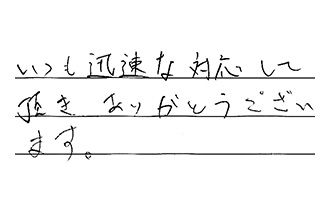 いつも迅速な対応して
頂きありがとうござい
ます。